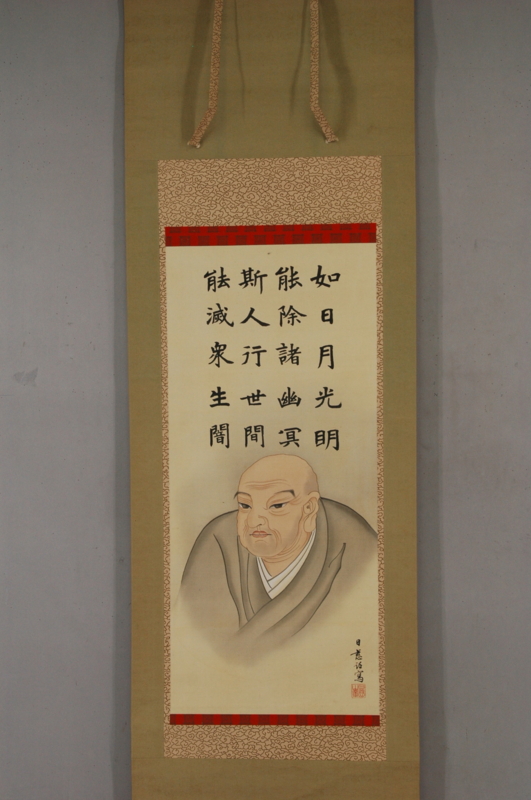 如日月光明
能除諸幽冥
斯人行世間
能滅衆生闇
日
寫